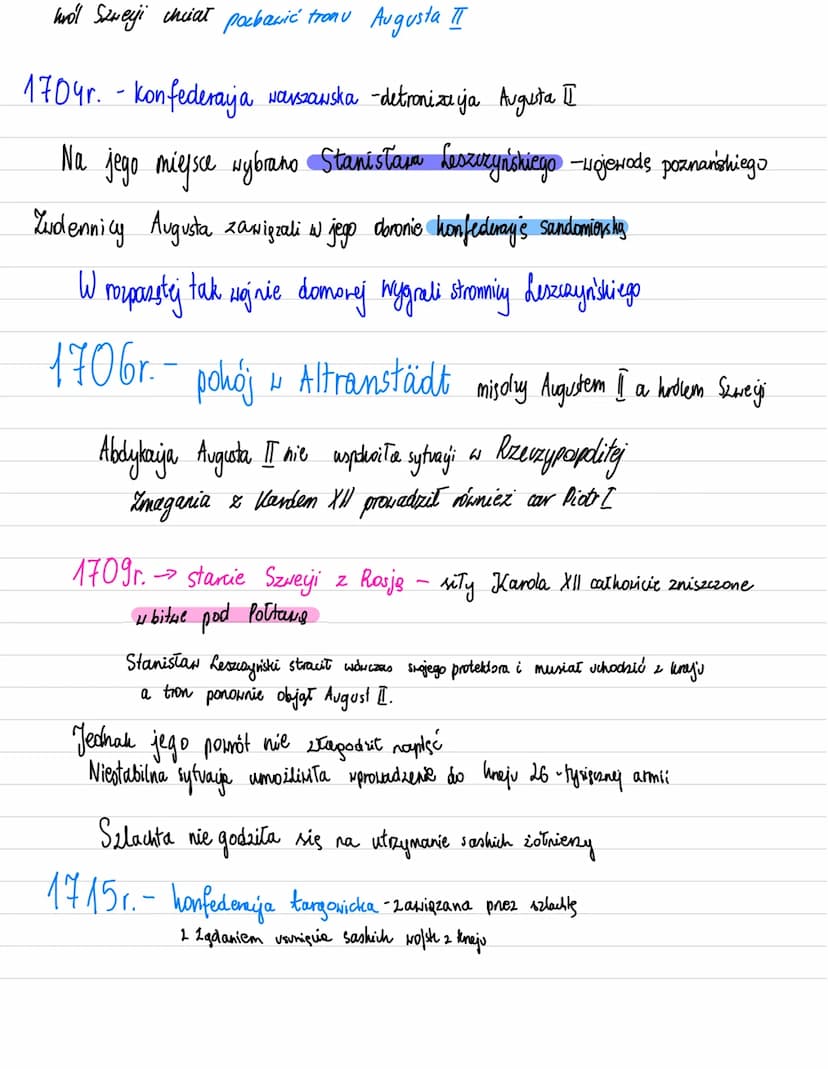 król Szwecji chciał pozbawić tronu Augusta II
1704r. - konfederacja warszawska - detronizacja Augusta II
Na jego miejsce wybrano Stanisława Leszczyńskiego - wojewodę poznańskiego
Zwolennicy Augusta zawiązali w jego obronie konfederację sandomierską
W rozpętej tak wojnie domowej wygrali stronnicy Leszczyńskiego
1706r. - pokój w Altranstädt między Augustem II a królem Szwecji
Abdykacja Augusta II nie uspokoiła sytuacji w Rzeczypospolitej
Zmagania z Karolem XII prowadził również car Piotr I
1709r. → starcie Szwecji z Rosją - siły Karola XII całkowicie zniszczone
w bitwie pod Połtawą
Stanisław Leszczyński stracił wówczas swojego protektora i musiał uchodzić z kraju
a tron ponownie objął August II.
Jednak jego powrót nie złagodził napięć
Niestabilna sytuacja umożliwiła wprowadzenie do kraju 26-tysięcznej armii
Szlachta nie godziła się na utrzymanie saskich żołnierzy
1715r. - konfederacja targowicka - zawiązana przez szlachtę
z żądaniem usunięcia saskich wojsk z kraju